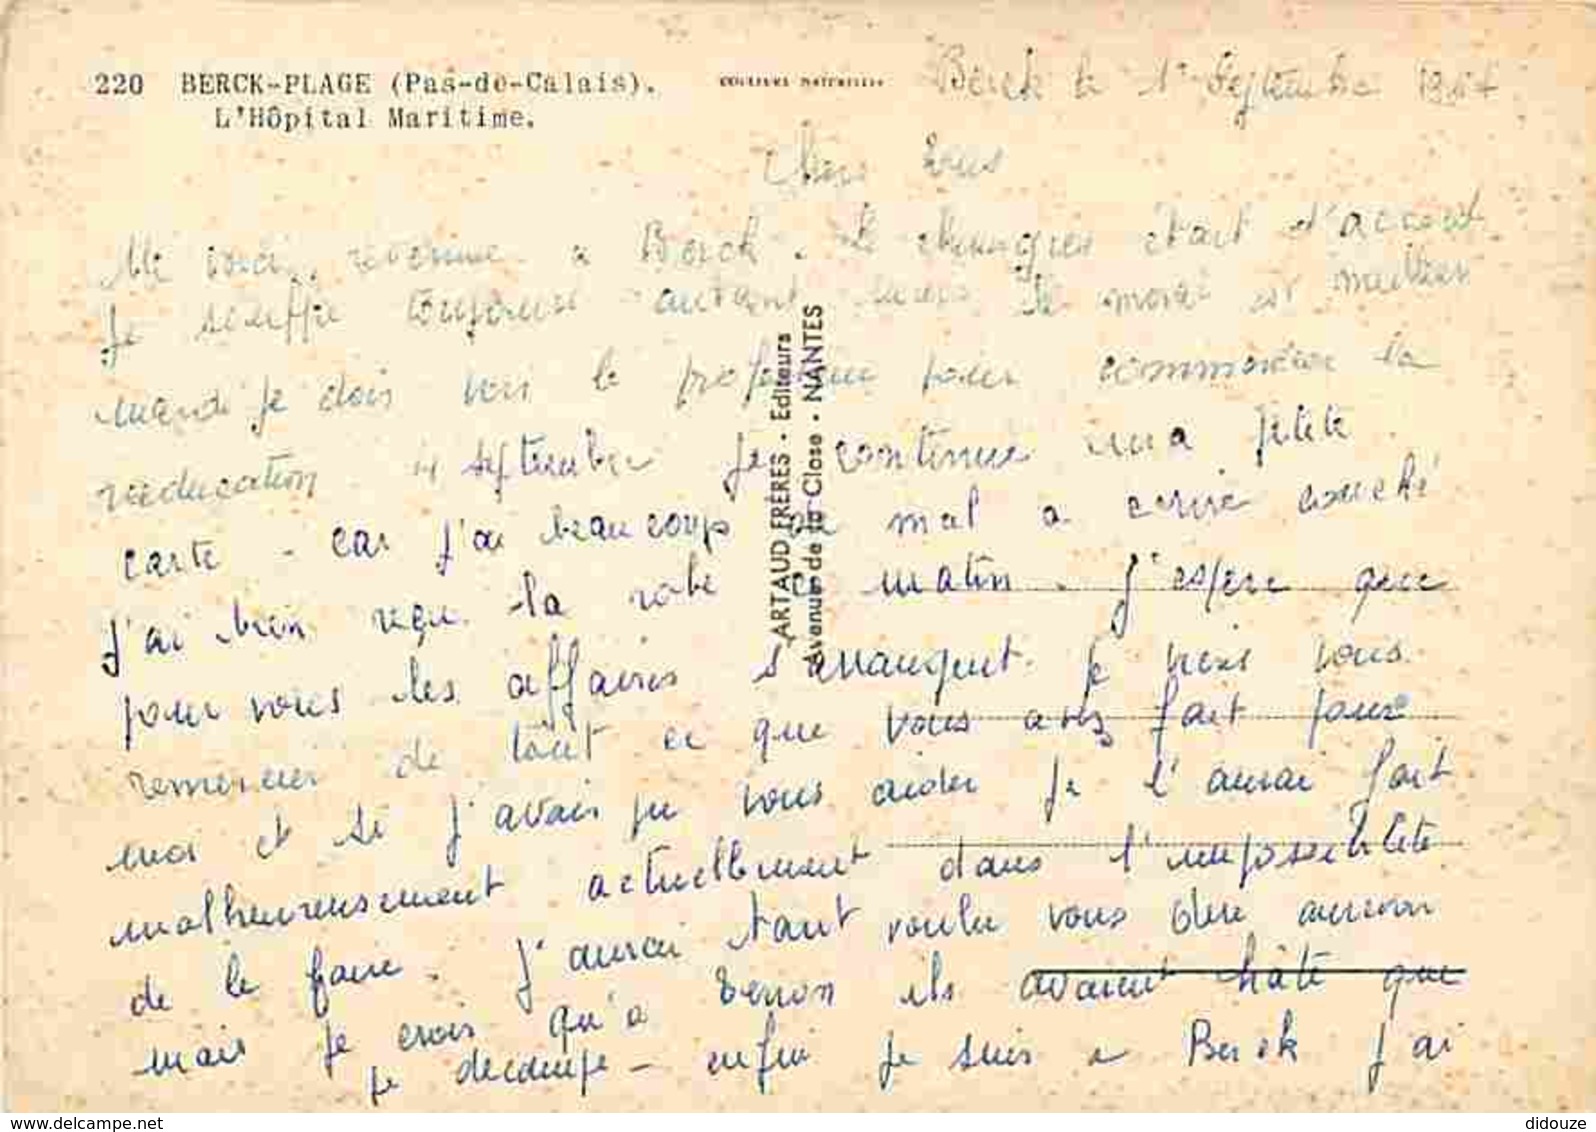 220 BERCK-PLAGE (Pas-de-Calais).
L'Hôpital Maritime.
COULEURS NATURELLES
Berck le 1er Septembre
Chers tous
Me voici revenue a Berck. Le chirurgien était d'accord
Je souffre toujours autant mais le moral est meilleur
mardi je dois voir le professeur pour commencer la
rééducation 4 septembre je continue ma petite
carte - car j'ai beaucoup de mal a ecrire couché
J'ai bien reçu la robe ce matin. J'espere que
pour vous les affaires s'arrangent. Je viens vous
remercier de tout ce que vous avez fait pour
moi et si j'avais pu vous aider je l'aurai fait
malheureusement actuellement dans l'impossibilité
de le faire. J'aurai tant voulu vous dire aurevoir
mais je crois qu'a ils avaient hâte que
je decampe - enfin je suis a Berck j'ai
ARTAUD FRÈRES - Editeurs
Avenue de la Close - NANTES
www.delcampe.net
didouze